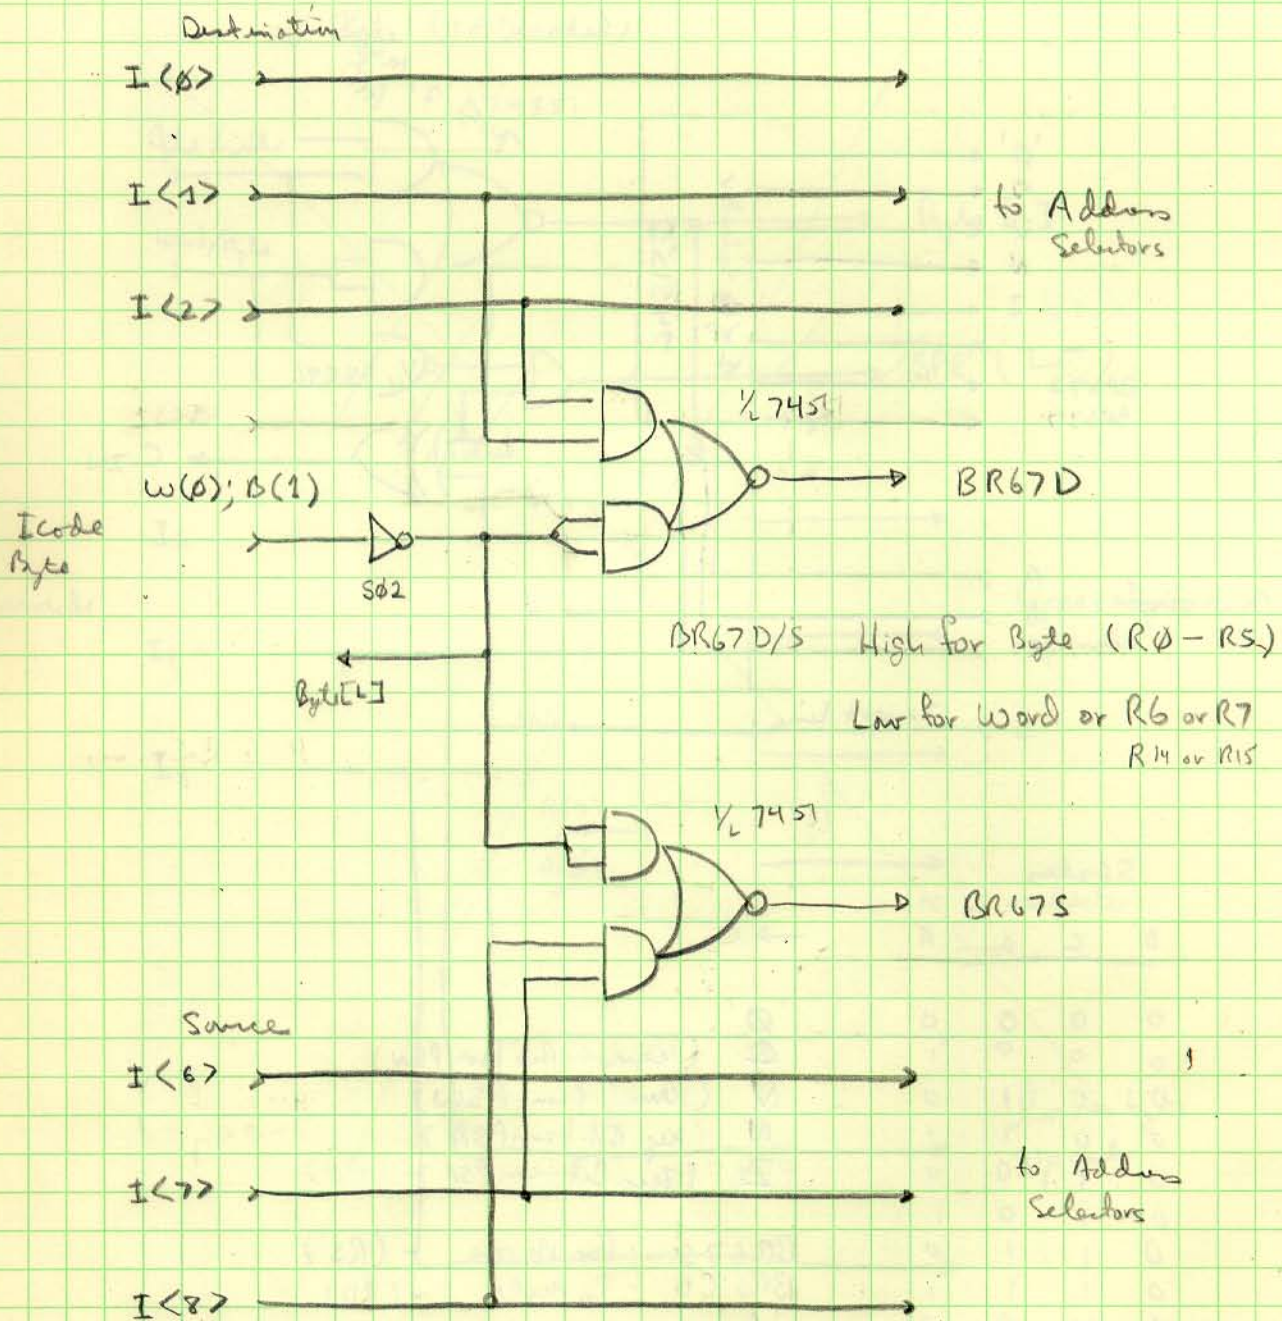 Destination
I<0>
I<1>
to Address
Selectors
I<2>
½ 7451
W(0); B(1)
BR67D
Icode
Byte
S02
BR67D/S High for Byte (R0 - R5)
Byte[L]
Low for Word or R6 or R7
R14 or R15
½ 7451
BR67S
Source
I<6>
I<7>
to Address
Selectors
I<8>